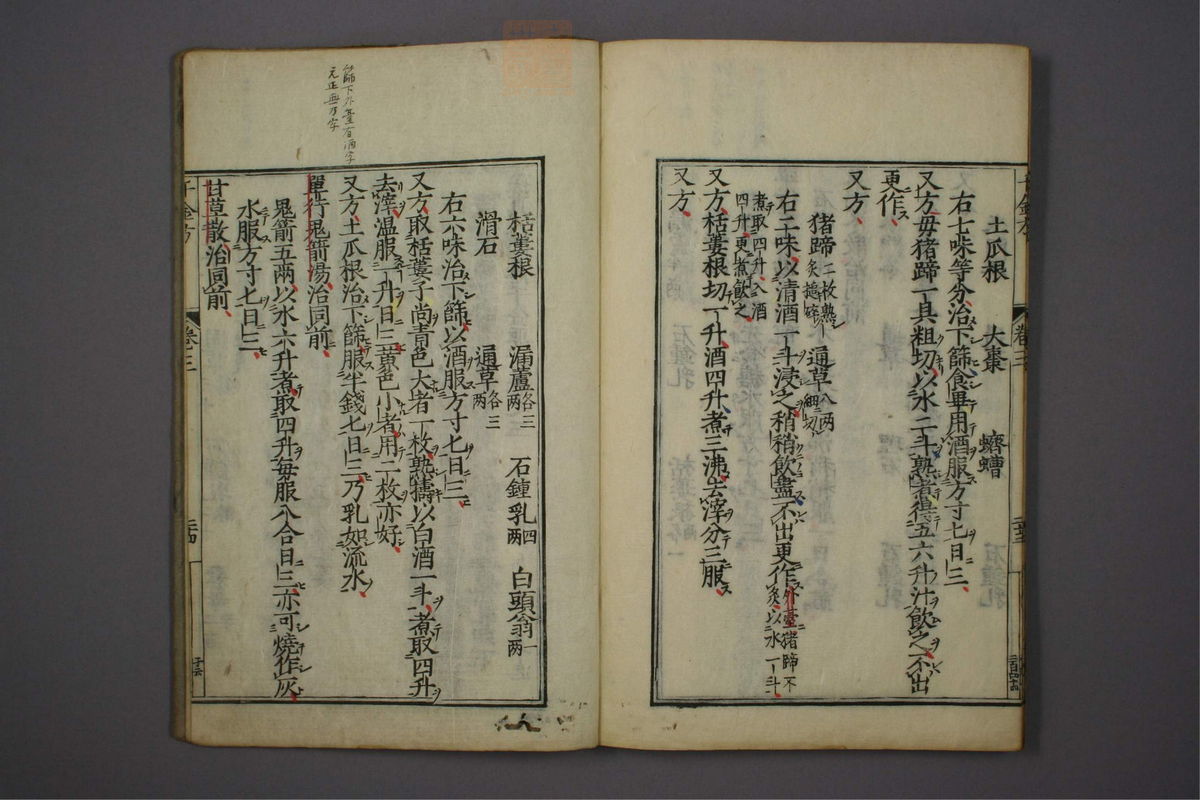 土瓜根 大棗 蠐螬
右七味等分治下篩食畢用酒服方寸匕日三
又方母猪蹄一具粗切以水二斗熟煮得五六升汁飲之不出
更作
又方
猪蹄二枚熟炙搥碎 通草八兩細切
右二味以清酒一斗浸之稍稍飲盡不出更作外臺猪蹄不炙以水一斗
煮取四升入酒四升更煮飲之
又方栝蔞根切一升酒四升煮三沸去滓分三服
又方
千金方 卷三
栝蔞根 漏蘆各三兩 石鍾乳四兩 白頭翁一兩
滑石 通草各三兩
右六味治下篩以酒服方寸匕日三
又方取栝蔞子尚青色大者一枚熟擣以白酒一斗煮取四升
去滓温服一升日三黄色小者用二枚亦好
又方土瓜根治下篩服半錢匕日三乃乳如流水
單行鬼箭湯治同前
鬼箭五兩以水六升煮取四升每服八合日三亦可燒作灰
水服方寸匕日三
甘草散治同前
千金方 卷三
下外臺有酒字
元正無乃字